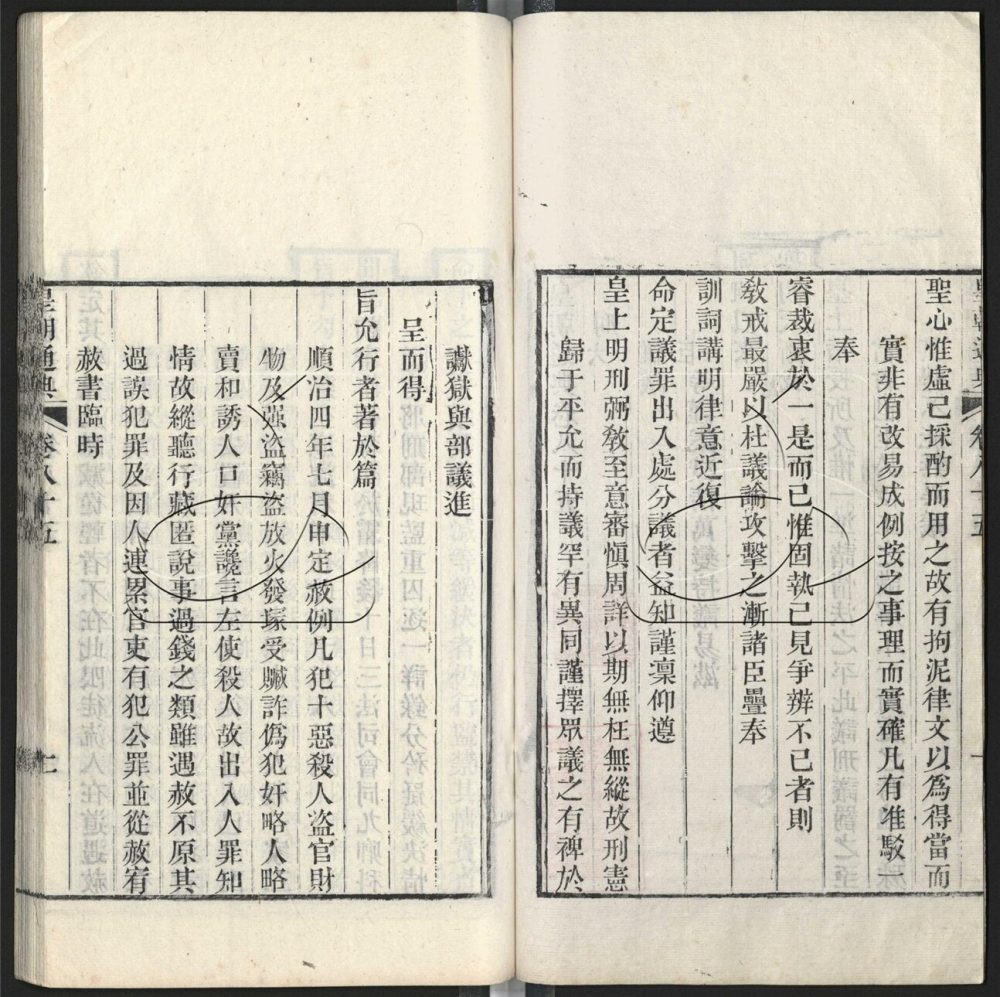 聖心惟虛己採酌而用之故有拘泥律文以爲得當而
實非有改易成例按之事理而實確凡有准駁一
奉
睿裁衷於一是而已惟固執己見爭辨不已者則
敎戒最嚴以杜議論攻擊之漸諸臣疊奉
訓詞講明律意近復
命定議罪出入處分議者益知謹凜仰遵
皇上明刑弼敎至意審愼周詳以期無枉無縱故刑憲
歸于平允而持議罕有異同謹擇眾議之有裨於
讞獄與部議進
呈而得
旨允行者著於篇
順治四年七月申定赦例凡犯十惡殺人盜官財
物及强盜竊盜放火發塚受贓詐僞犯奸略人略
賣和誘人口奸黨讒言左使殺人故出入人罪知
情故縱聽行藏匿說事過錢之類雖遇赦不原其
過誤犯罪及因人連累官吏有犯公罪並從赦宥
赦書臨時
皇朝通典 卷八十五